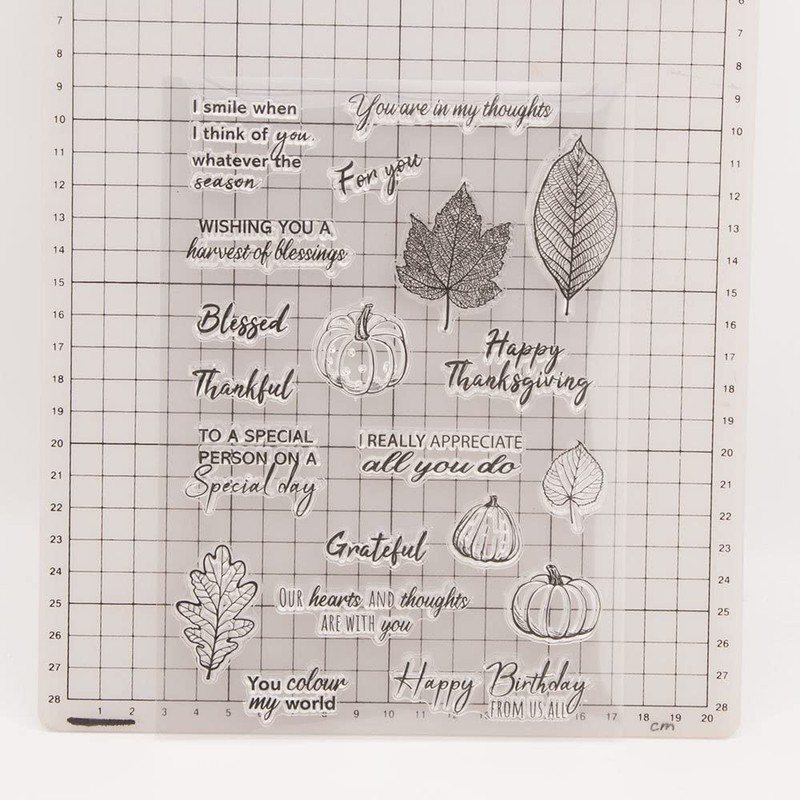 I smile when
I think of you,
whatever the
season
You are in my thoughts
For you
WISHING YOU A
harvest of blessings
Blessed
Thankful
Happy
Thanksgiving
TO A SPECIAL
PERSON ON A
Special day
I REALLY APPRECIATE
all you do
Grateful
OUR hearts AND thoughts
ARE WITH you
You colour
my world
Happy Birthday
FROM US ALL
6
7 7
8 8
9 9
10 10
11 11
12 12
13 13
14 14
15 15
16 16
17 17
18 18
19 19
20 20
21 21
22 22
23 23
24 24
25 25
26 26
27 27
28 28
1 2 3 4 5 9 10 11 12 13 16 17 18 19 20
cm